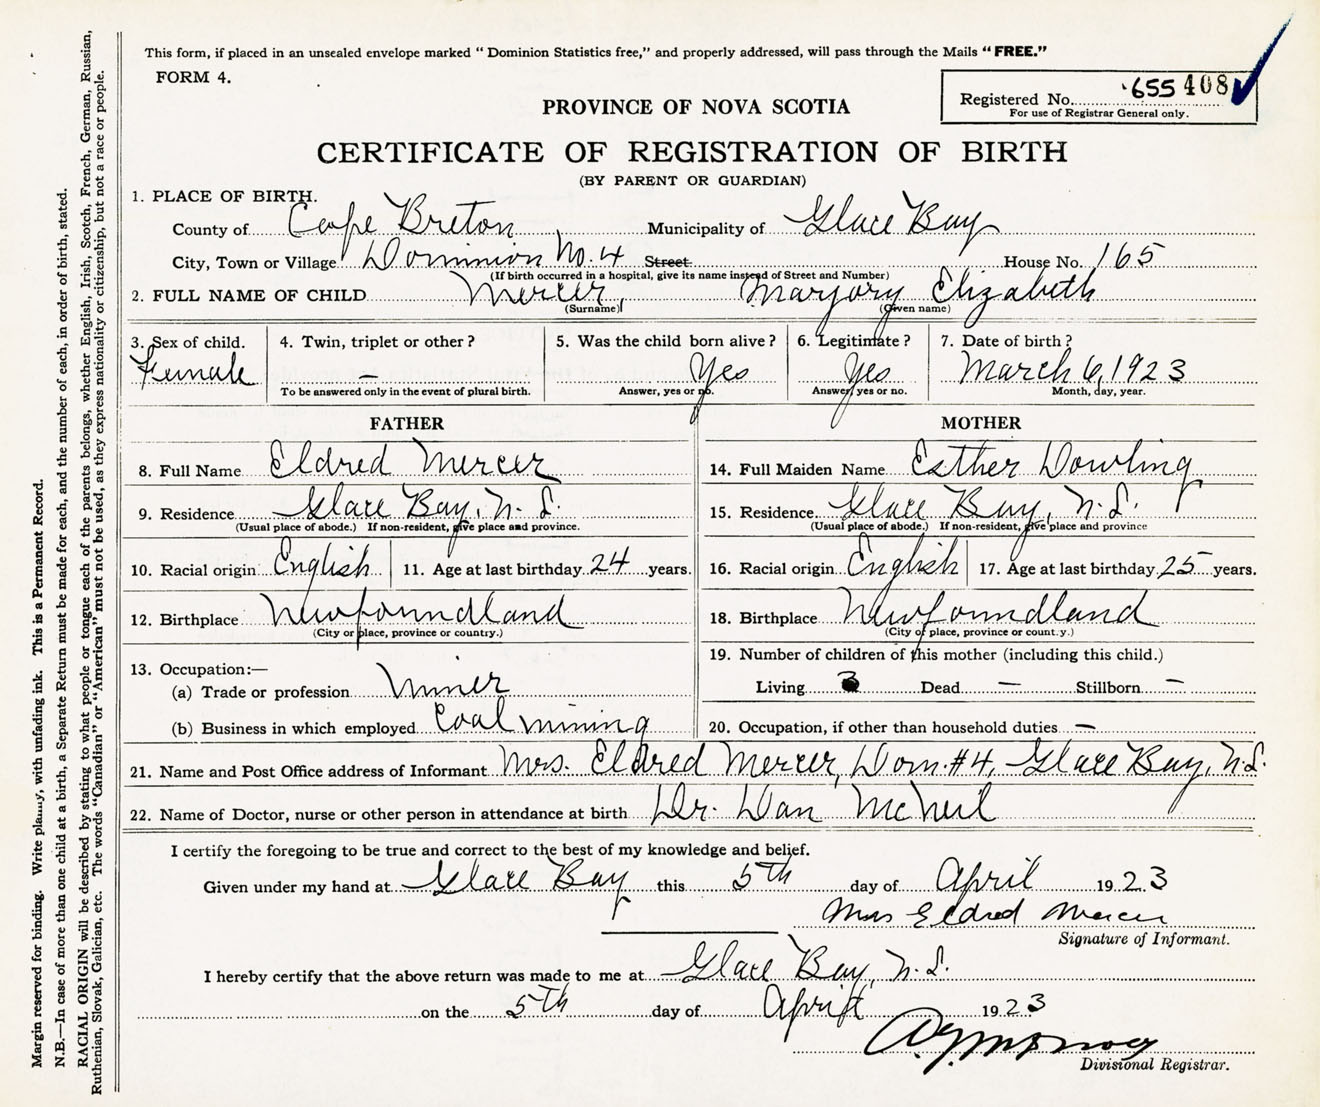 This form, if placed in an unsealed envelope marked "Dominion Statistics free," and properly addressed, will pass through the Mails "FREE."
FORM 4.
Registered No. 655408
For use of Registrar General only.
PROVINCE OF NOVA SCOTIA
CERTIFICATE OF REGISTRATION OF BIRTH
(BY PARENT OR GUARDIAN)
1. PLACE OF BIRTH.
County of Cape Breton Municipality of Glace Bay
City, Town or Village Dominion No. 4 Street House No. 165
(If birth occurred in a hospital, give its name instead of Street and Number)
2. FULL NAME OF CHILD Mercer, Marjory Elizabeth
(Surname) (Given name)
3. Sex of child. 4. Twin, triplet or other? 5. Was the child born alive? 6. Legitimate? 7. Date of birth?
Female — Yes Yes March 6, 1923
To be answered only in the event of plural birth. Answer, yes or no. Answer, yes or no. Month, day, year.
FATHER MOTHER
8. Full Name Eldred Mercer 14. Full Maiden Name Esther Dowling
9. Residence Glace Bay, N.S. 15. Residence Glace Bay, N.S.
(Usual place of abode.) If non-resident, give place and province. (Usual place of abode.) If non-resident, give place and province
10. Racial origin English 11. Age at last birthday 24 years. 16. Racial origin English 17. Age at last birthday 25 years.
12. Birthplace Newfoundland 18. Birthplace Newfoundland
(City or place, province or country.) (City or place, province or count.y.)
13. Occupation:— 19. Number of children of this mother (including this child.)
(a) Trade or profession Miner Living 3 Dead — Stillborn —
(b) Business in which employed Coal mining 20. Occupation, if other than household duties —
21. Name and Post Office address of Informant Mrs. Eldred Mercer, Dom. #4, Glace Bay, N.S.
22. Name of Doctor, nurse or other person in attendance at birth Dr. Dan McNeil
I certify the foregoing to be true and correct to the best of my knowledge and belief.
Given under my hand at Glace Bay this 5th day of April 1923
Mrs Eldred Mercer
Signature of Informant.
I hereby certify that the above return was made to me at Glace Bay, N.S.
on the 5th day of April 1923
Divisional Registrar.
Margin reserved for binding. Write plainly, with unfading ink. This is a Permanent Record.
N.B.—In case of more than one child at a birth, a Separate Return must be made for each, and the number of each, in order of birth, stated.
RACIAL ORIGIN will be described by stating to what people or tongue each of the parents belongs, whether English, Irish, Scotch, French, German, Russian,
Ruthenian, Slovak, Galician, etc. The words "Canadian" or "American" must not be used, as they express nationality or citizenship, but not a race or people.